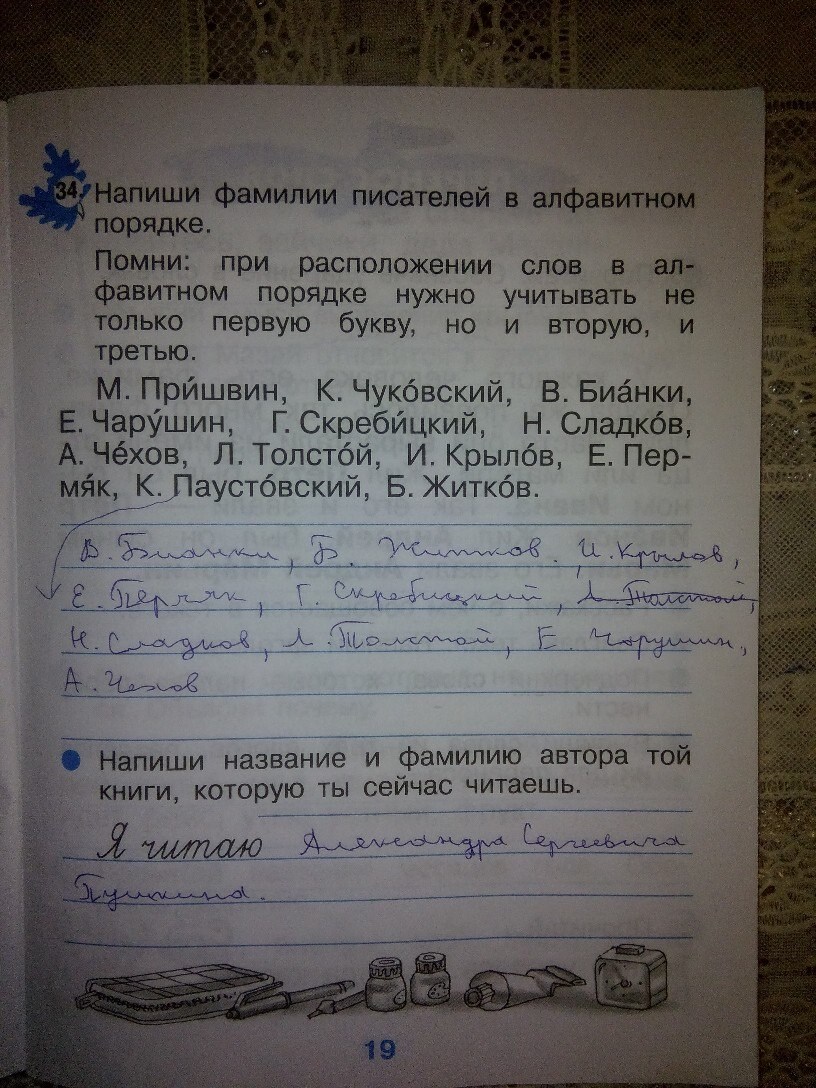 34. Напиши фамилии писателей в алфавитном
порядке.
Помни: при расположении слов в ал-
фавитном порядке нужно учитывать не
только первую букву, но и вторую, и
третью.
М. При́швин, К. Чуко́вский, В. Биа́нки,
Е. Чару́шин, Г. Скреби́цкий, Н. Сладко́в,
А. Че́хов, Л. Толсто́й, И. Крыло́в, Е. Пер-
мя́к, К. Паусто́вский, Б. Житко́в.
В. Бианки, Б. Житков. И. Крылов,
Е. Пермяк, Г. Скребицкий, Л. Толстой,
Н. Сладков, Л. Толстой, Е. Чарушин,
А. Чехов
Напиши название и фамилию автора той
книги, которую ты сейчас читаешь.
Я читаю Александра Сергеевича
Пушкина.
19